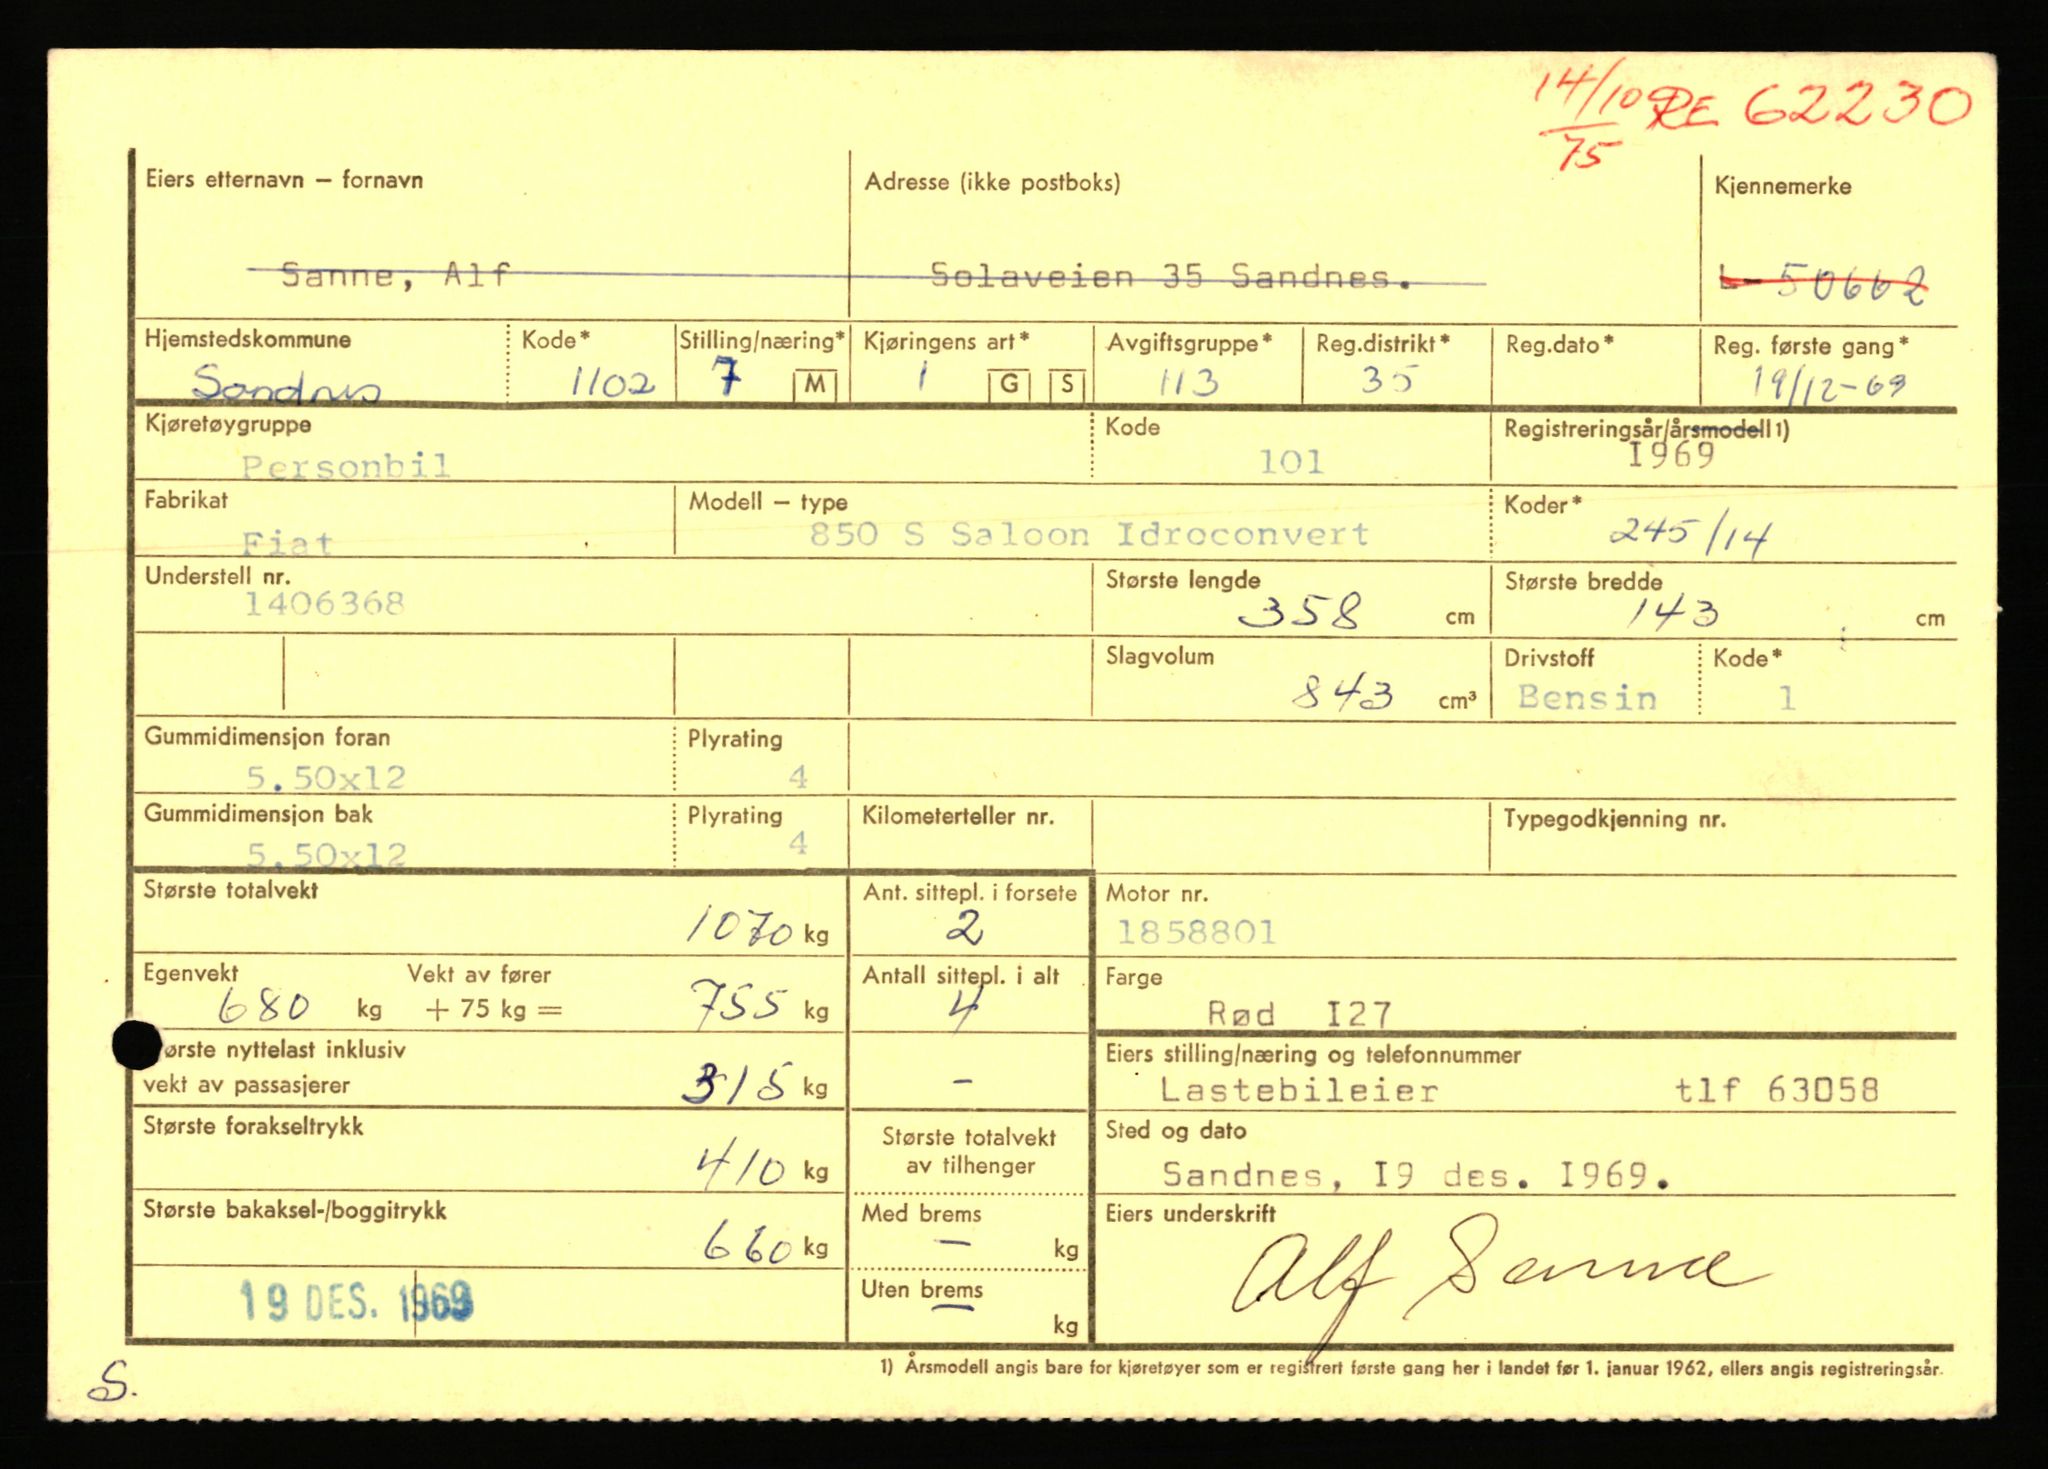 14/10 75 RE 62230
Eiers etternavn – fornavn Adresse (ikke postboks) Kjennemerke
Sanne, Alf Solaveien 35 Sandnes. L- 50662
Hjemstedskommune Kode* Stilling/næring* Kjøringens art* Avgiftsgruppe* Reg.distrikt* Reg.dato* Reg. første gang*
Sandnes 1102 7 M 1 G S 113 35 19/12-69
Kjøretøygruppe Kode Registreringsår/årsmodell 1)
Personbil 101 I969
Fabrikat Modell – type Koder*
Fiat 850 S Saloon Idroconvert 245/14
Understell nr. Største lengde Største bredde
1406368 358 cm 143 cm
Slagvolum Drivstoff Kode*
843 cm³ Bensin 1
Gummidimensjon foran Plyrating
5.50x12 4
Gummidimensjon bak Plyrating Kilometerteller nr. Typegodkjenning nr.
5.50x12 4
Største totalvekt Ant. sittepl. i forsete Motor nr.
1070 kg 2 1858801
Egenvekt Vekt av fører Antall sittepl. i alt Farge
680 kg + 75 kg = 755 kg 4 Rød I27
ørste nyttelast inklusiv Eiers stilling/næring og telefonnummer
vekt av passasjerer 315 kg – Lastebileier tlf 63058
Største forakseltrykk Største totalvekt av tilhenger Sted og dato
410 kg Sandnes, I9 des. I969.
Største bakaksel-/boggitrykk Med brems Eiers underskrift
660 kg – kg Alf Sanne
19 DES. 1969 Uten brems
– kg
1) Årsmodell angis bare for kjøretøyer som er registrert første gang her i landet før 1. januar 1962, ellers angis registreringsår.
S.